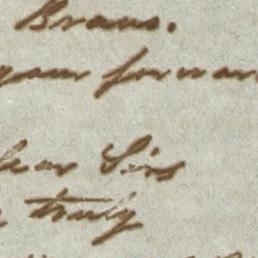 Braus.
your forwar
dear Sirs
truly